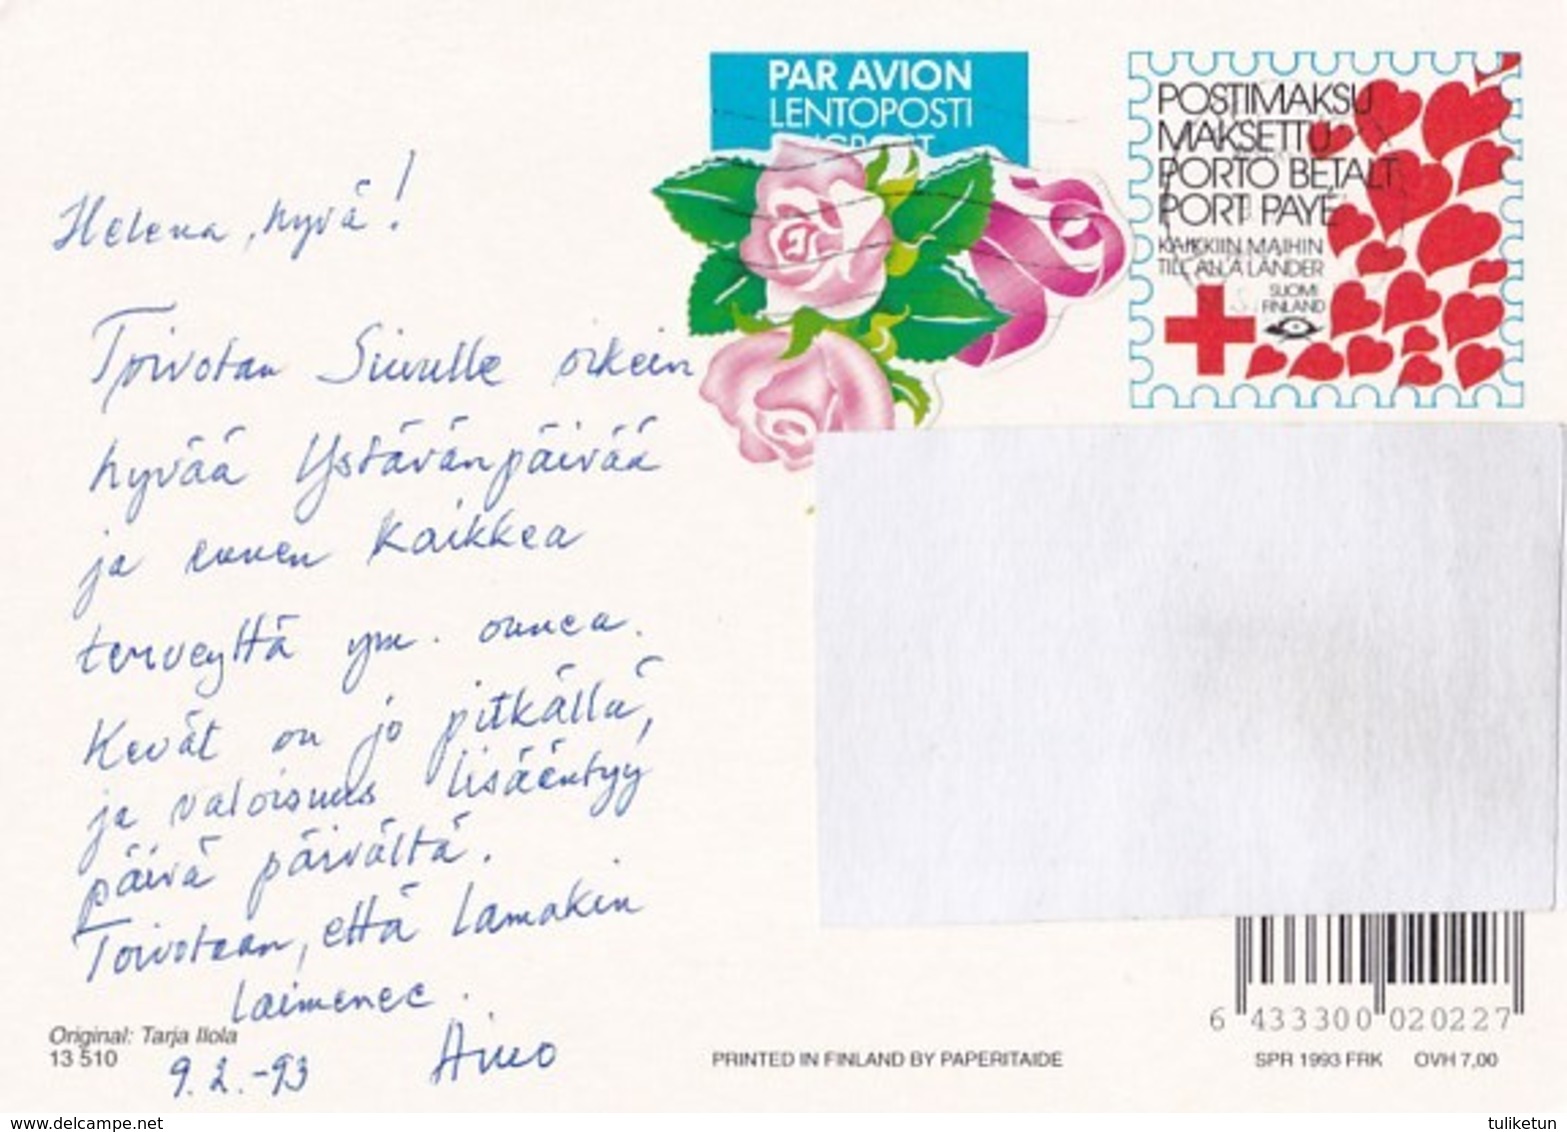 PAR AVION
LENTOPOSTI
POSTIMAKSU
MAKSETTU
PORTO BETALT
PORT PAYÉ
KAIKKIIN MAIHIN
TILL ALLA LÄNDER
SUOMI
FINLAND
Helena, hyvä!
Toivotan Sinulle oikein
hyvää Ystävänpäivää
ja ennen kaikkea
terveyttä ym. onnea.
Kevät on jo pitkällä,
ja valoisuus lisääntyy
päivä päivältä.
Toivotaan, että lamakin
laimenee.
Aino
9.2.-93
Original: Tarja Ilola
13 510
PRINTED IN FINLAND BY PAPERITAIDE
6 433300 020227
SPR 1993 FRK OVH 7,00
www.delcampe.net
tuliketun